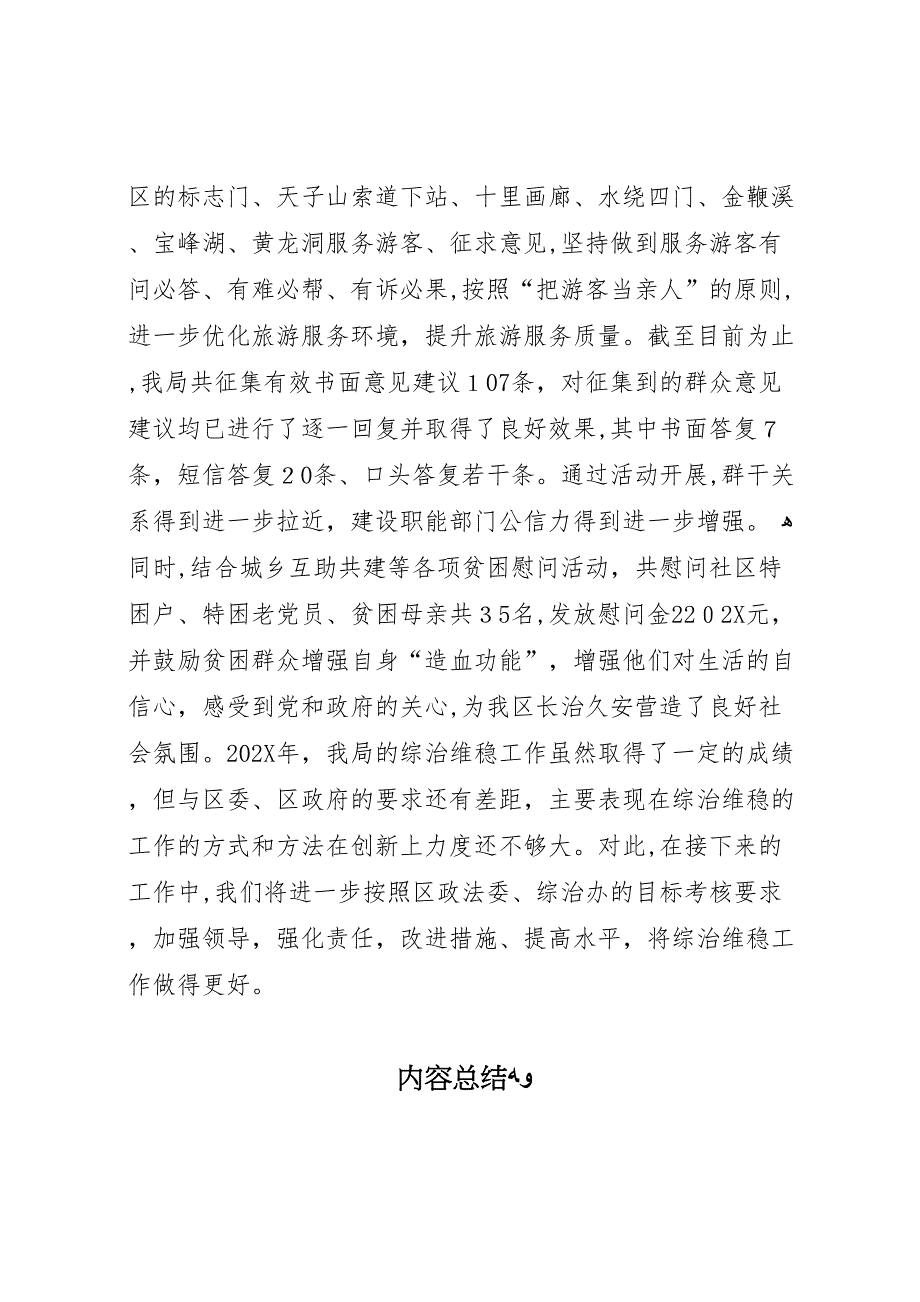 区的标志门、天子山索道下站、十里画廊、水绕四门、金鞭溪
、宝峰湖、黄龙洞服务游客、征求意见,坚持做到服务游客有
问必答、有难必帮、有诉必果,按照“把游客当亲人”的原则,
进一步优化旅游服务环境，提升旅游服务质量。截至目前为止
,我局共征集有效书面意见建议１07条，对征集到的群众意见
建议均已进行了逐一回复并取得了良好效果,其中书面答复７
条，短信答复２0条、口头答复若干条。通过活动开展,群干关
系得到进一步拉近，建设职能部门公信力得到进一步增强。 ﻫ
同时,结合城乡互助共建等各项贫困慰问活动，共慰问社区特
困户、特困老党员、贫困母亲共３5名,发放慰问金22０2X元，
并鼓励贫困群众增强自身“造血功能”，增强他们对生活的自
信心，感受到党和政府的关心,为我区长治久安营造了良好社
会氛围。202X年，我局的综治维稳工作虽然取得了一定的成绩
，但与区委、区政府的要求还有差距，主要表现在综治维稳的
工作的方式和方法在创新上力度还不够大。对此,在接下来的
工作中,我们将进一步按照区政法委、综治办的目标考核要求
，加强领导，强化责任，改进措施、提高水平，将综治维稳工
作做得更好。
内容总结ﻮﻪ